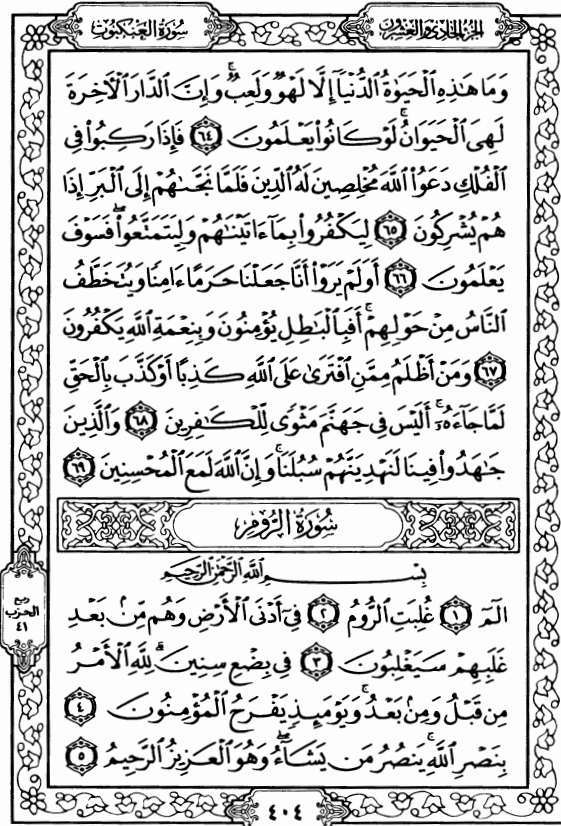 الجزء الحادي والعشرون
سورة العنكبوت
وَمَا هَـٰذِهِ ٱلْحَيَوٰةُ ٱلدُّنْيَآ إِلَّا لَهْوٌ وَلَعِبٌ ۚ وَإِنَّ ٱلدَّارَ ٱلْـَٔاخِرَةَ
لَهِىَ ٱلْحَيَوَانُ ۚ لَوْ كَانُوا۟ يَعْلَمُونَ ٦٤ فَإِذَا رَكِبُوا۟ فِى
ٱلْفُلْكِ دَعَوُا۟ ٱللَّهَ مُخْلِصِينَ لَهُ ٱلدِّينَ فَلَمَّا نَجَّىٰهُمْ إِلَى ٱلْبَرِّ إِذَا
هُمْ يُشْرِكُونَ ٦٥ لِيَكْفُرُوا۟ بِمَآ ءَاتَيْنَـٰهُمْ وَلِيَتَمَتَّعُوا۟ ۖ فَسَوْفَ
يَعْلَمُونَ ٦٦ أَوَلَمْ يَرَوْا۟ أَنَّا جَعَلْنَا حَرَمًا ءَامِنًا وَيُتَخَطَّفُ
ٱلنَّاسُ مِنْ حَوْلِهِمْ ۚ أَفَبِٱلْبَـٰطِلِ يُؤْمِنُونَ وَبِنِعْمَةِ ٱللَّهِ يَكْفُرُونَ
٦٧ وَمَنْ أَظْلَمُ مِمَّنِ ٱفْتَرَىٰ عَلَى ٱللَّهِ كَذِبًا أَوْ كَذَّبَ بِٱلْحَقِّ
لَمَّا جَآءَهُۥٓ ۚ أَلَيْسَ فِى جَهَنَّمَ مَثْوًى لِّلْكَـٰفِرِينَ ٦٨ وَٱلَّذِينَ
جَـٰهَدُوا۟ فِينَا لَنَهْدِيَنَّهُمْ سُبُلَنَا ۚ وَإِنَّ ٱللَّهَ لَمَعَ ٱلْمُحْسِنِينَ ٦٩
سُورَةُ الرُّومِ
بِسْمِ ٱللَّهِ ٱلرَّحْمَـٰنِ ٱلرَّحِيمِ
الٓمٓ ١ غُلِبَتِ ٱلرُّومُ ٢ فِىٓ أَدْنَى ٱلْأَرْضِ وَهُم مِّنۢ بَعْدِ
غَلَبِهِمْ سَيَغْلِبُونَ ٣ فِى بِضْعِ سِنِينَ ۗ لِلَّهِ ٱلْأَمْرُ
مِن قَبْلُ وَمِنۢ بَعْدُ ۚ وَيَوْمَئِذٍ يَفْرَحُ ٱلْمُؤْمِنُونَ ٤
بِنَصْرِ ٱللَّهِ ۚ يَنصُرُ مَن يَشَآءُ ۖ وَهُوَ ٱلْعَزِيزُ ٱلرَّحِيمُ ٥
ربع
الحزب
٤١
٤٠٤